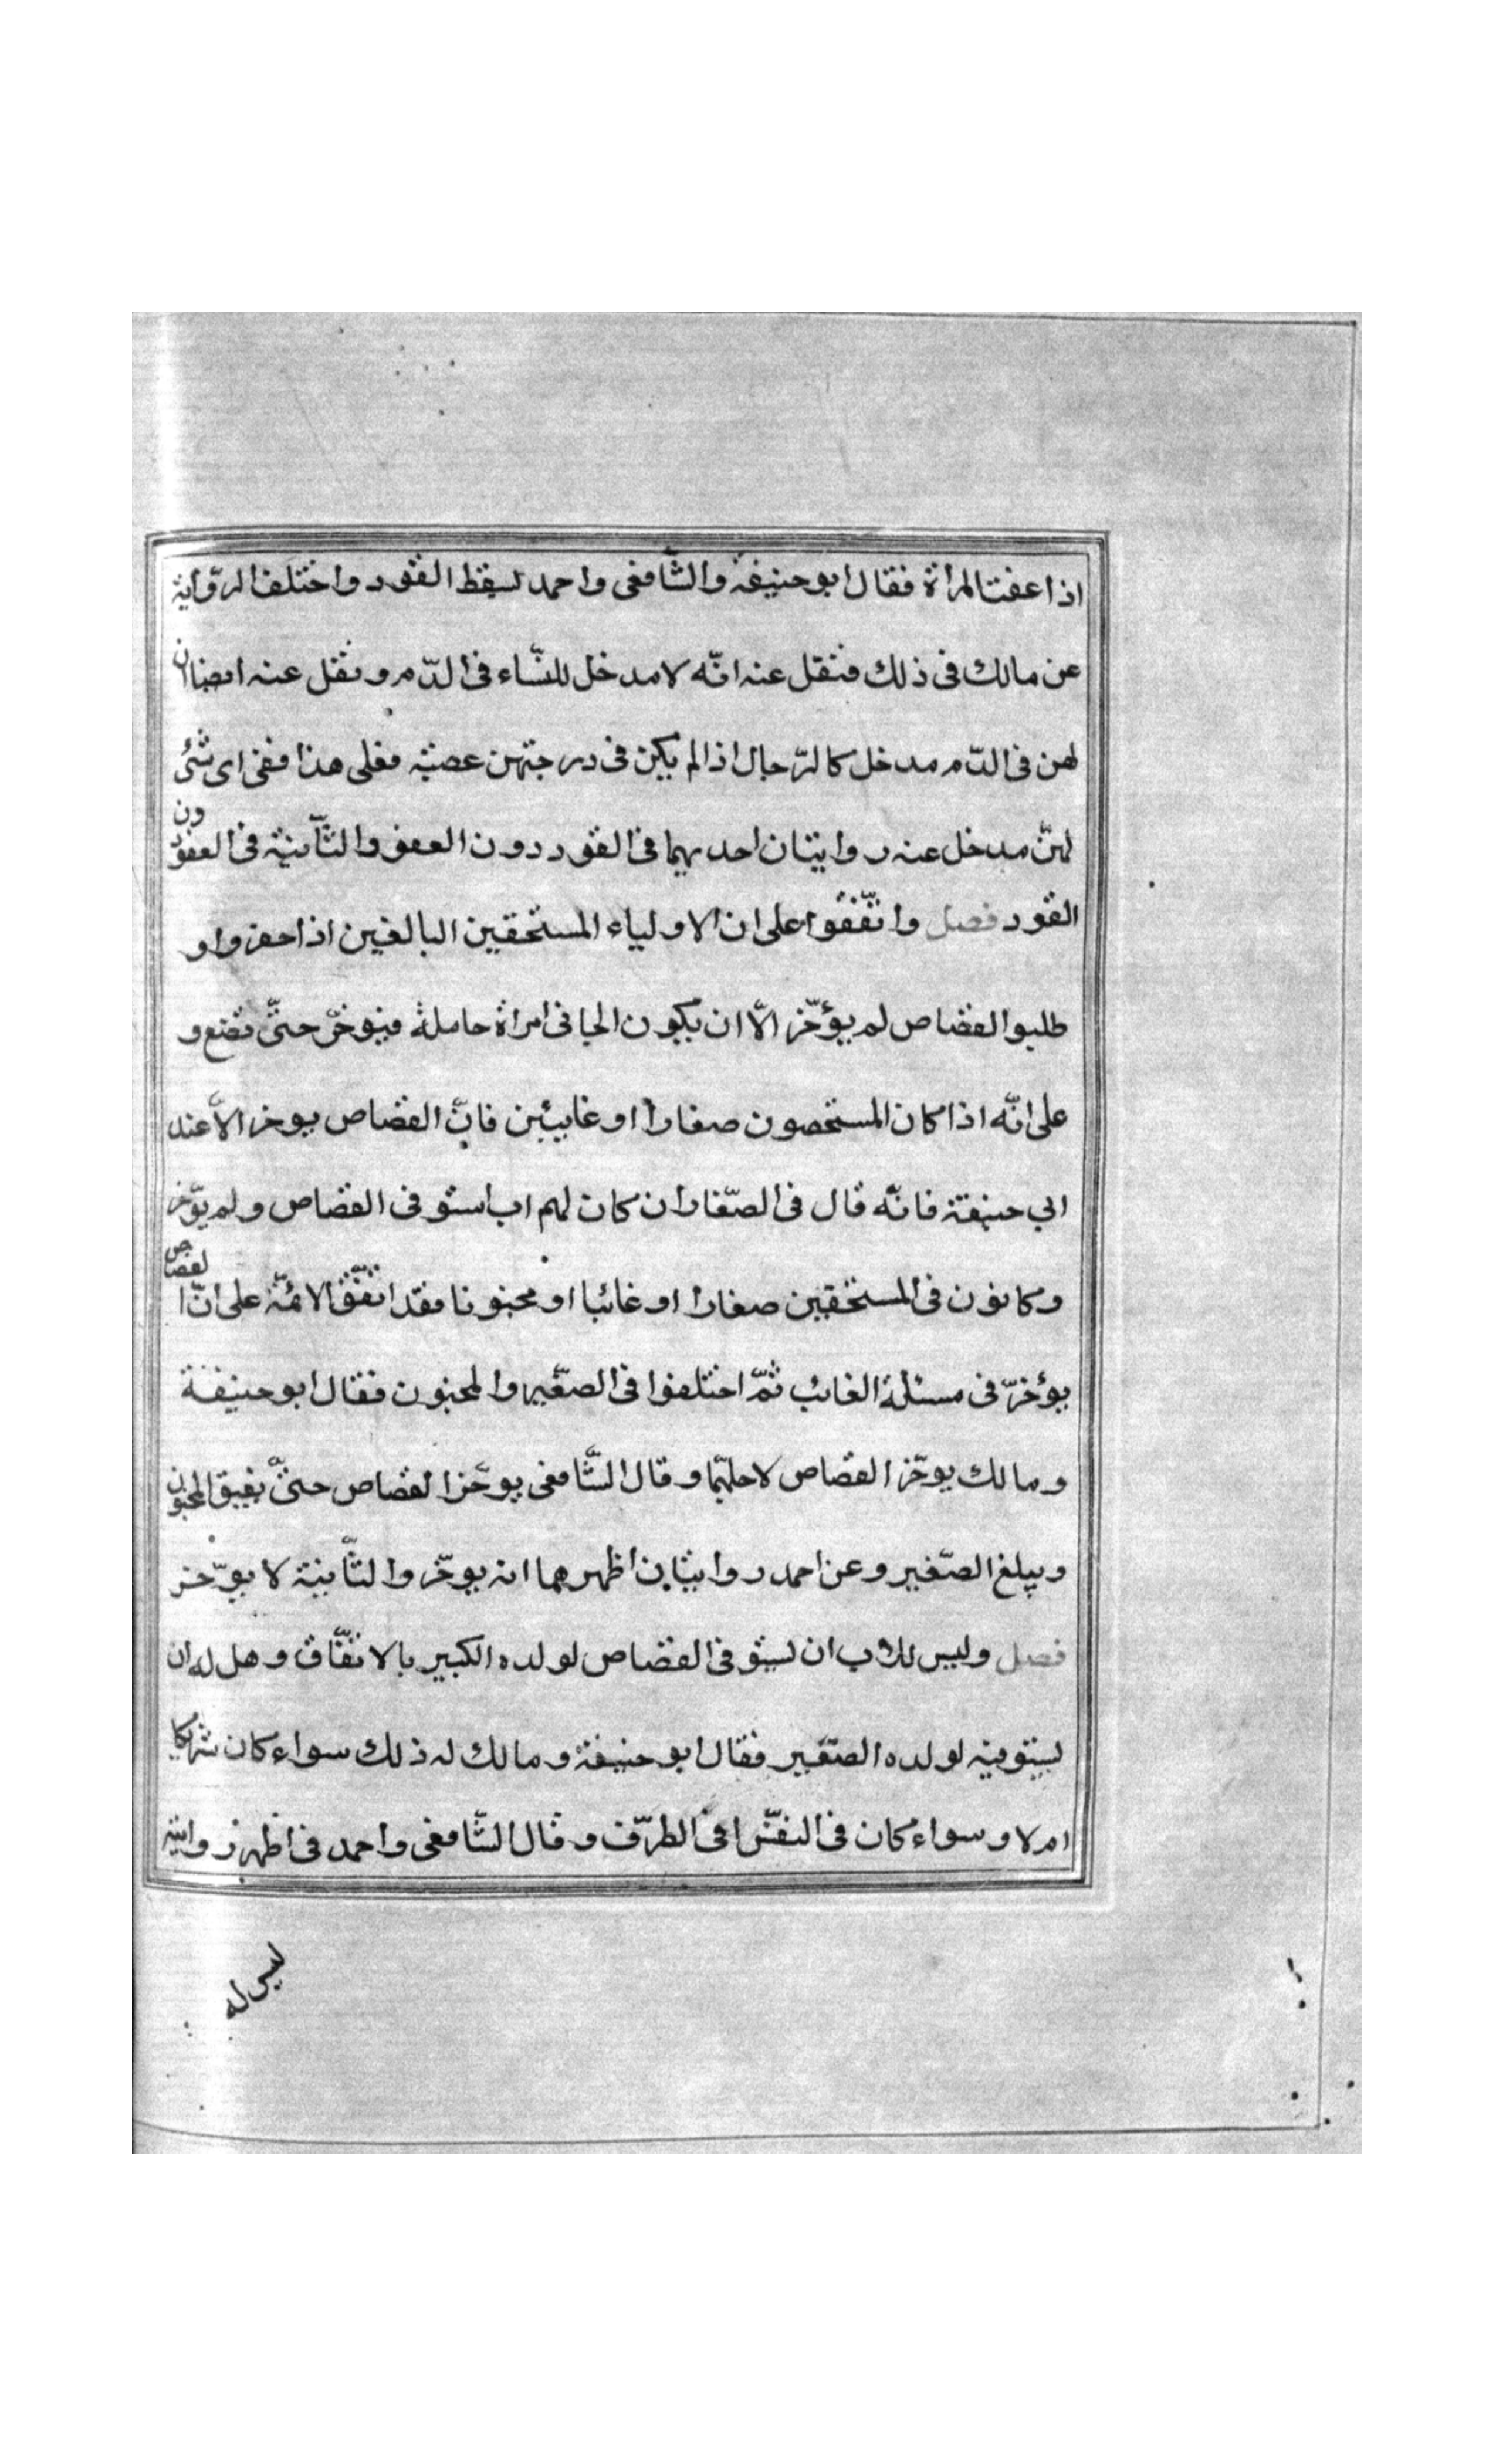 اذا عفت المراة فقال ابو حنيفة والشّافعى واحمد لسقط القود واختلف الروّاية
عن مالك فى ذلك فنقل عنه انّه لا مدخل للنسّاء فى الدّم ونقل عنه ايضا ان
لهن فى الدّم مدخل كالرّجال اذا لم يكن فى درجتهن عصبة فعلى هذا ففى اى شئ
لهنّ مدخل عنه روايتان احديهما فى القود دون العفو والثّانية فى العفو دون
القود فصل واتّفقوا على ان الاولياء المستحقين البالغين اذا حضروا و
طلبوا القصاص لم يؤخّر الّا ان يكون الجانى امراة حاملة فيوخرّ حتىّ تضع و
على انّه اذا كان المستحصون صغارا او غايبين فانّ القصاص يوخر الّا عند
ابي حنيفة فانّه قال فى الصّغار ان كان لهم اب استوفى القصاص ولم يؤخّر
وكانون فى المستحقين صغارا او غائبا او مجنونا فقد اتفّق الائمّة على انّ القصاص
يؤخرّ فى مسئلة الغائب ثمّ اختلفوا فى الصغّير والمجنون فقال ابو حنيفة
ومالك يوخّر القصاص لاجلهما وقال الشّافعى يوخّر القصاص حتىّ يفيق المجنون
ويبلغ الصّغير وعن احمد روايتان اظهرهما انه يوخّر والثّانية لا يوّخر
فصل وليس للاب ان ليستوفى القصاص لولده الكبير بالاتفّاق وهل له ان
ليستوفيه لولده الصّغير فقال ابو حنيفة ومالك له ذلك سواء كان شريكا
ام لا وسواء كان فى النفسّ او فى الطرّف وقال الشّافعى واحمد فى اظهر روايتيه
ليس له